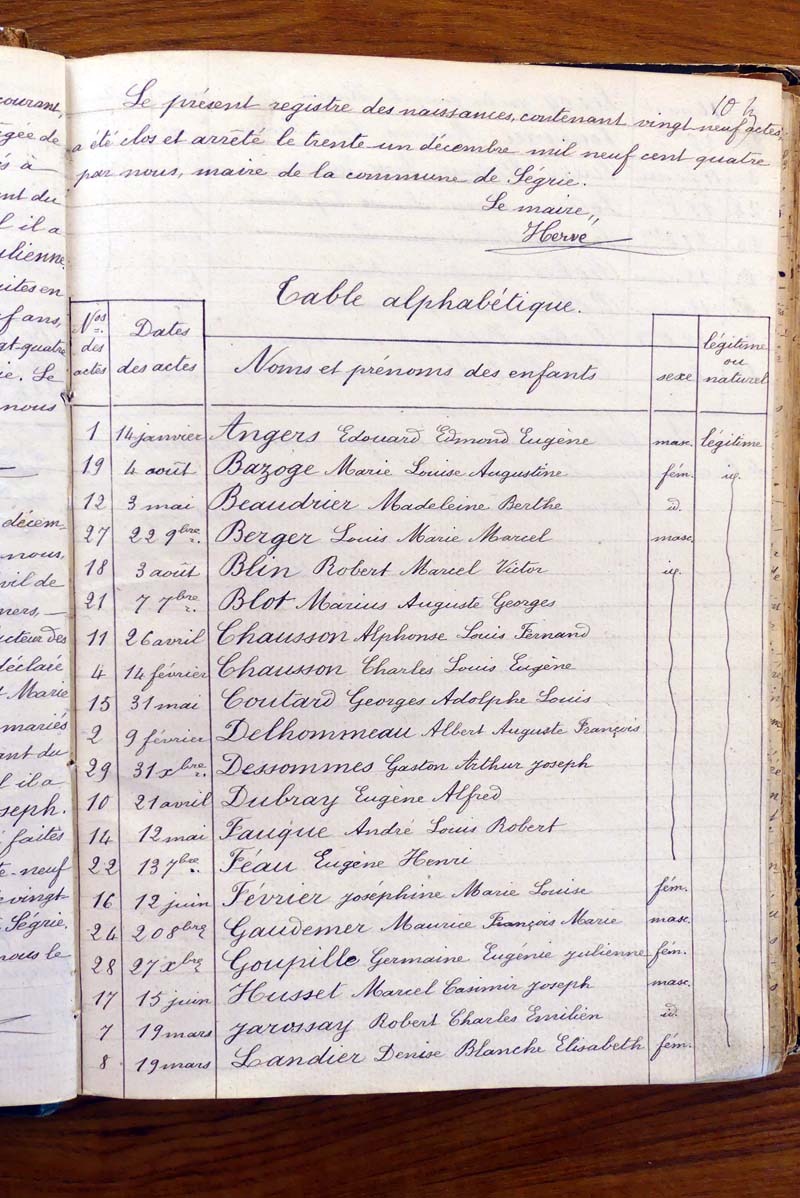 courant,
gée de
s à
nt du
il a
ulienne
uites en
f ans,
gt-quatre
ie. Le
nous
décem-
nous,
vil de
mers, —
ucteur des
déclaré
Marie
mariés
ant du
il a
seph.
faites
te-neuf
vingt-
Ségrie.
nous le
10
Le présent registre des naissances, contenant vingt-neuf actes,
a été clos et arrêté le trente-un décembre mil neuf cent quatre
par nous, maire de la commune de Ségrie.
Le maire,
Hervé
Table alphabétique.
Nos des actes Dates des actes Noms et prénoms des enfants sexe légitime ou naturel
1 14 janvier Angers Edouard Edmond Eugène masc. légitime
19 4 août Bazoge Marie Louise Augustine fém. id.
12 3 mai Beaudrier Madeleine Berthe id.
27 22 9bre. Berger Louis Marie Marcel masc.
18 3 août Blin Robert Marcel Victor id.
21 7 7bre Blot Marius Auguste Georges
11 26 avril Chausson Alphonse Louis Fernand
4 14 février Chausson Charles Louis Eugène
15 31 mai Coutard Georges Adolphe Louis
2 9 février Delhommeau Albert Auguste François
29 31 xbre. Dessommes Gaston Arthur Joseph
10 21 avril Dubray Eugène Alfred
14 12 mai Fauque André Louis Robert
22 13 7bre. Féau Eugène Henri
16 12 juin Février Joséphine Marie Louise fém.
24 20 8bre Gaudemer Maurice François Marie masc.
28 27 xbre Goupille Germaine Eugénie Julienne fém.
17 15 juin Husset Marcel Casimir Joseph masc.
7 19 mars Jarossay Robert Charles Emilien id.
8 19 mars Landier Denise Blanche Elisabeth fém.